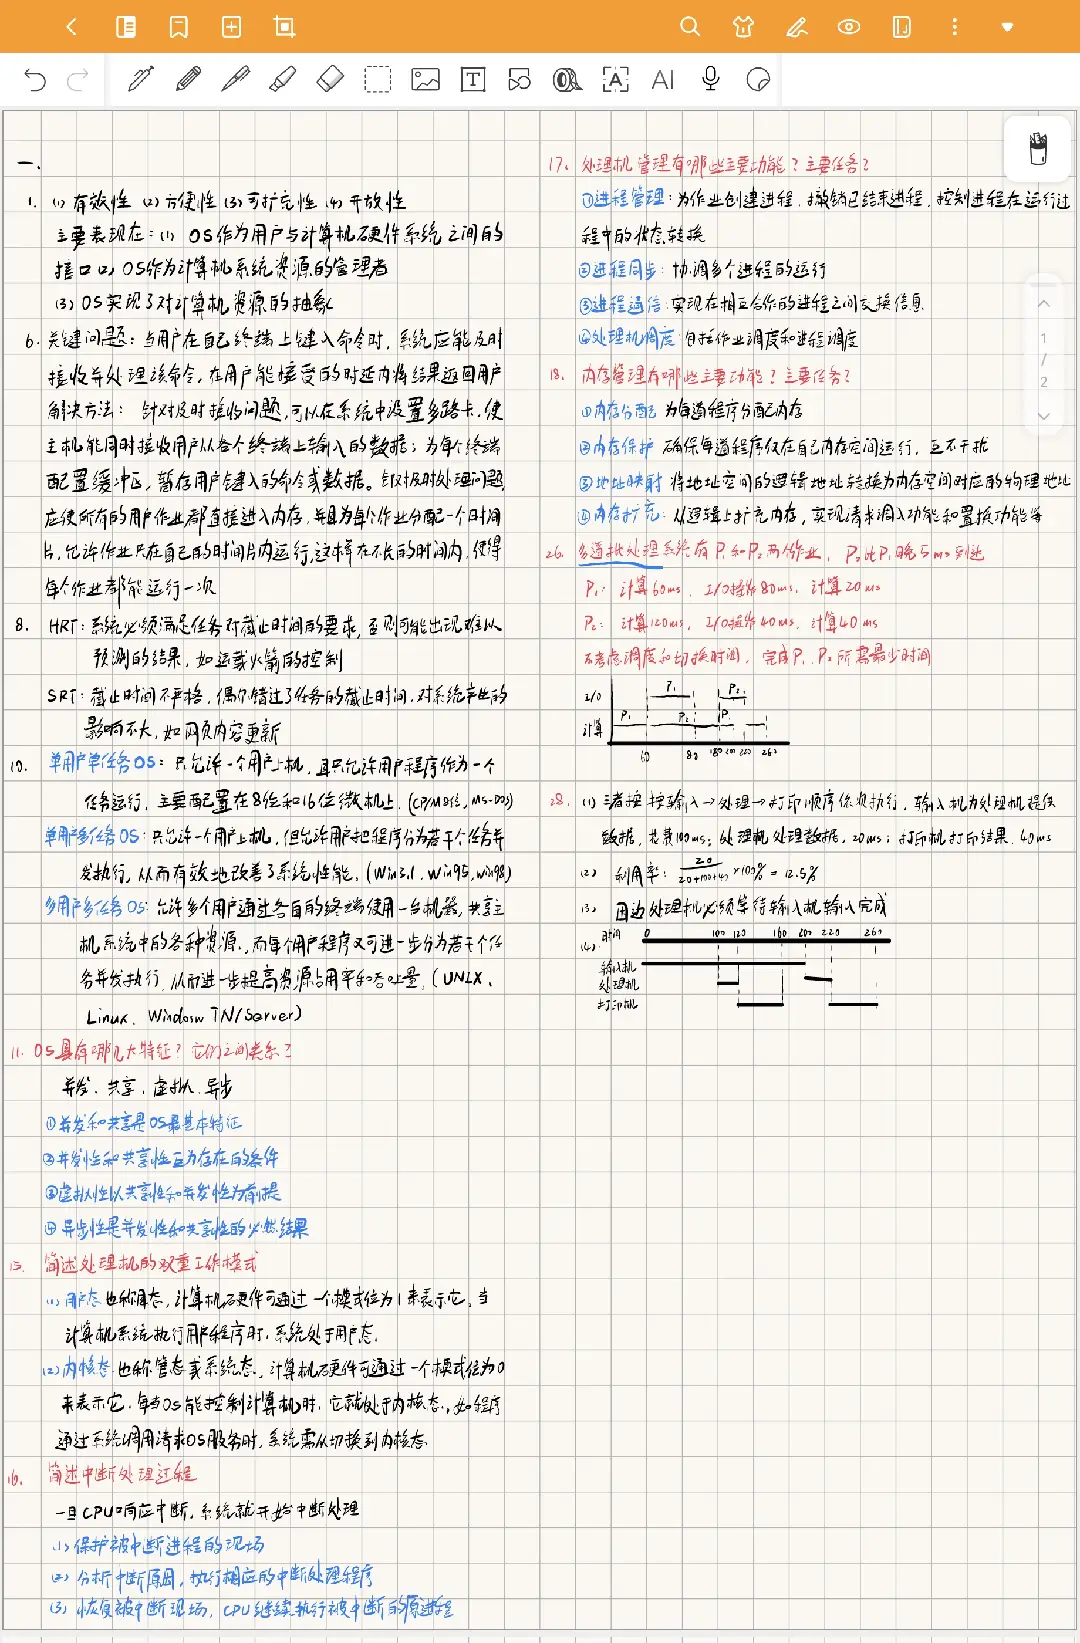 一.
1. (1) 有效性 (2) 方便性 (3) 可扩充性 (4) 开放性
主要表现在:(1) OS作为用户与计算机硬件系统之间的
接口 (2) OS作为计算机系统资源的管理者
(3) OS实现了对计算机资源的抽象
6. 关键问题:当用户在自己终端上键入命令时,系统应能及时
接收并处理该命令,在用户能接受的时延内将结果返回用户
解决方法:针对及时接收问题,可以在系统中设置多路卡,使
主机能同时接收用户从各个终端上输入的数据;为每个终端
配置缓冲区,暂存用户键入的命令或数据。针对及时处理问题,
应使所有的用户作业都直接进入内存,并且为每个作业分配一个时间
片,允许作业只在自己的时间片内运行,这样在不长的时间内,使得
每个作业都能运行一次
8. HRT:系统必须满足任务对截止时间的要求,否则可能出现难以
预测的结果,如运载火箭的控制
SRT:截止时间不严格,偶尔错过了任务的截止时间,对系统产生的
影响不大,如网页内容更新
10. 单用户单任务OS:只允许一个用户上机,且只允许用户程序作为一个
任务运行,主要配置在8位和16位微机上.(CP/M, MS-DOS)
单用户多任务OS:只允许一个用户上机,但允许用户把程序分为若干个任务并
发执行,从而有效地改善了系统性能,(Win3.1, Win95, win98)
多用户多任务OS:允许多个用户通过各自的终端使用一台机器,共享主
机系统中的各种资源,而每个用户程序又可进一步分为若干个任
务并发执行,从而进一步提高资源占用率和吞吐量,(UNIX、
Linux、Windosw TN/Server)
11. OS具有哪几大特征?它们之间关系?
并发、共享、虚拟、异步
①并发和共享是OS最基本特征
②并发性和共享性互为存在的条件
③虚拟性以共享性和并发性为前提
④异步性是并发性和共享性的必然结果
15. 简述处理机的双重工作模式
(1)用户态 也称目态,计算机硬件可通过一个模式位为1来表示它,当
计算机系统执行用户程序时,系统处于用户态.
(2)内核态 也称管态或系统态,计算机硬件可通过一个模式位为0
来表示它.每当OS能控制计算机时,它就处于内核态,如程序
通过系统调用请求OS服务时,系统需从切换到内核态.
16. 简述中断处理过程
一旦CPU响应中断,系统就开始中断处理
(1)保护被中断进程的现场
(2)分析中断原因,执行相应的中断处理程序
(3)恢复被中断现场,CPU继续执行被中断的原进程
17. 处理机管理有哪些主要功能?主要任务?
①进程管理:为作业创建进程,撤销已结束进程,控制进程在运行过
程中的状态转换
②进程同步:协调多个进程的运行
③进程通信:实现在相互合作的进程之间交换信息
④处理机调度:包括作业调度和进程调度
18. 内存管理有哪些主要功能?主要任务?
①内存分配 为每道程序分配内存
②内存保护 确保每道程序仅在自己内存空间运行,互不干扰
③地址映射 将地址空间的逻辑地址转换为内存空间对应的物理地址
④内存扩充:从逻辑上扩充内存,实现请求调入功能和置换功能等
26. 多道批处理系统有P₁和P₂两个作业,P₂比P₁晚5ms到达
P₁:计算60ms、I/O操作80ms、计算20ms
P₂:计算120ms、I/O操作40ms、计算40ms
不考虑调度和切换时间,完成P₁、P₂所需最少时间
I/O P₁ P₂
计算 P₁ P₂ P₁
60 80 180 200 220 260
28. (1) 三者按 按输入→处理→打印顺序依次执行,输入机为处理机提供
数据,花费100ms;处理机处理数据,20ms;打印机打印结果,40ms
(2) 利用率:20/20+100+40 ×100% = 12.5%
(3) 因为处理机必须等待输入机输入完成
(4). 时间 0 100 120 160 200 220 260
输入机
处理机
打印机
1
/
2